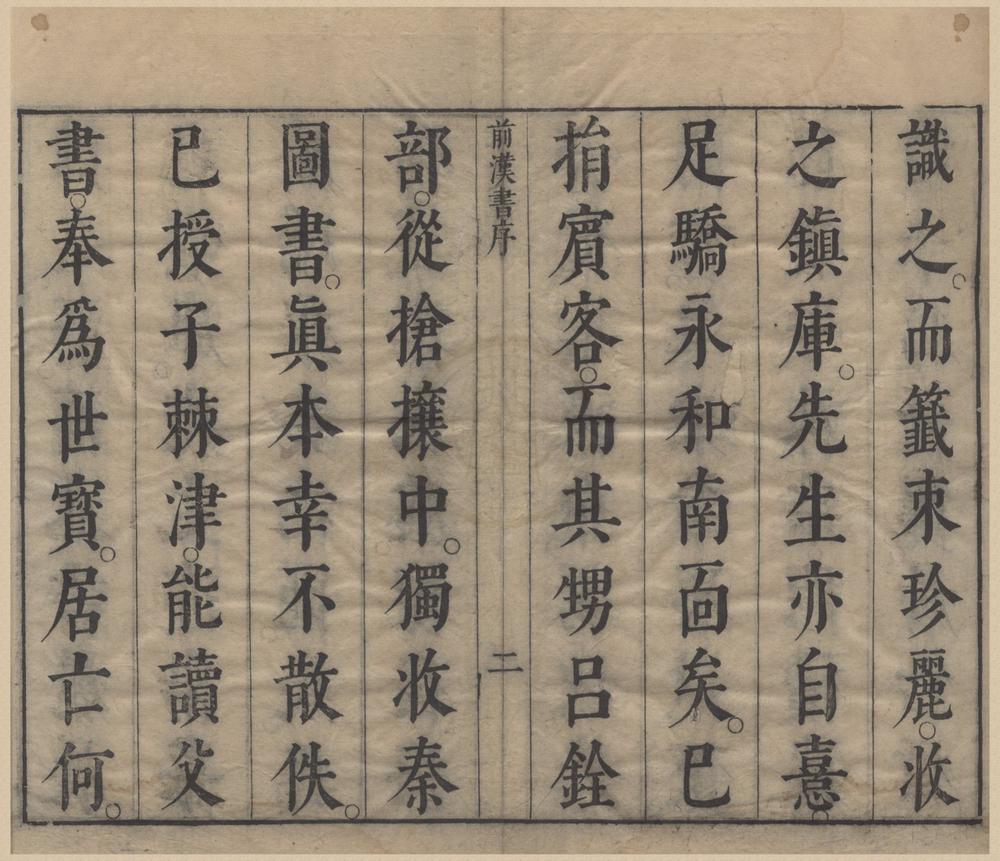 識之。而籤束珍麗。收
之鎮庫。先生亦自憙。
足驕永和南面矣。已
捐賓客。而其甥呂銓
前漢書序 二
部。從搶攘中。獨收秦
圖書。眞本幸不散佚。
已授子棘津。能讀父
書。奉爲世寶。居亡何。